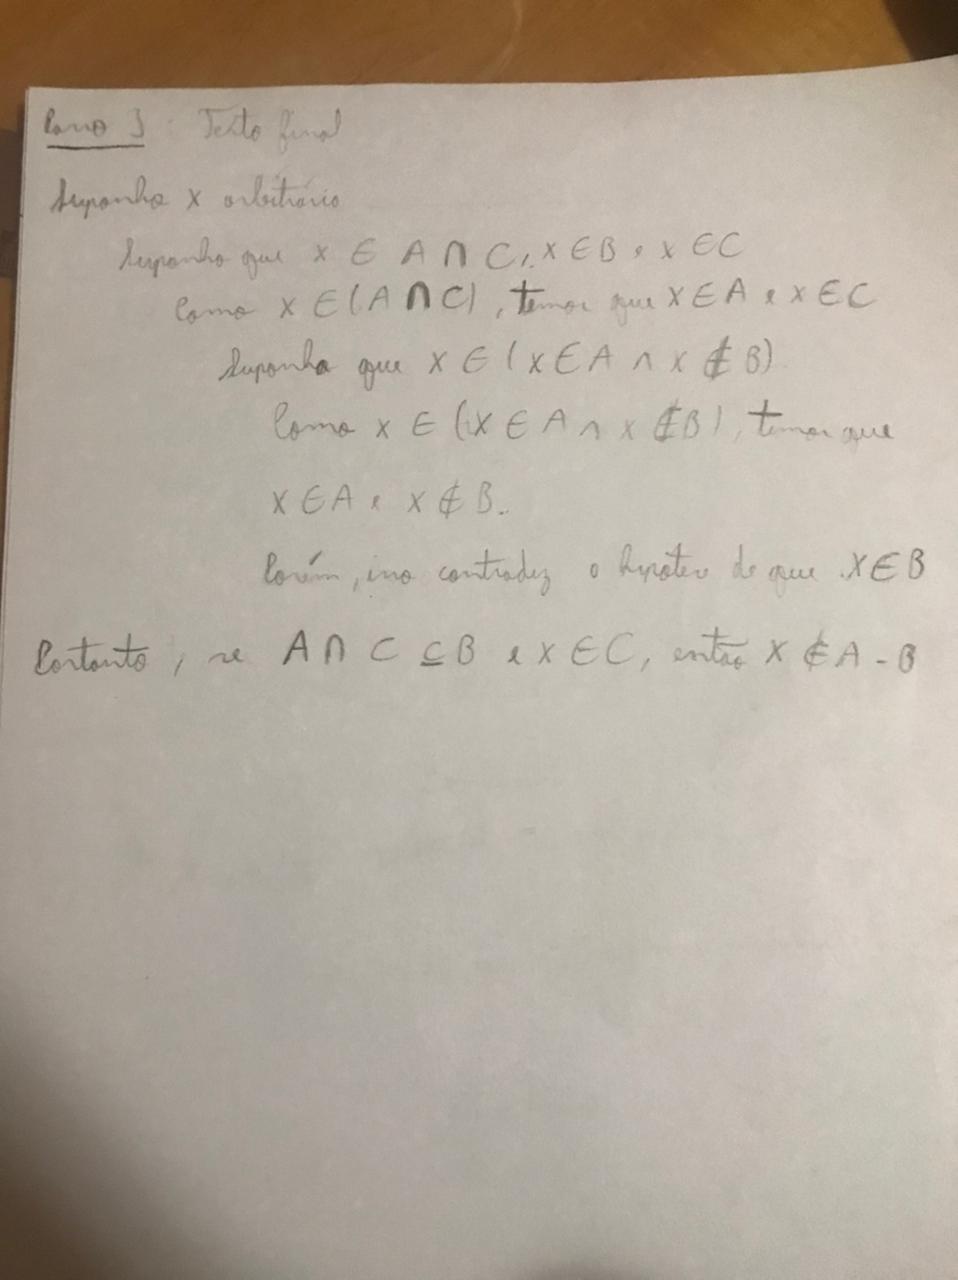 Passo 3: Texto final
Suponha x arbitrário
Suponha que x ∈ A ∩ C, x ∈ B e x ∈ C
Como x ∈ (A ∩ C), temos que x ∈ A e x ∈ C
Suponha que x ∈ (x ∈ A ∧ x ∉ B)
Como x ∈ (x ∈ A ∧ x ∉ B), temos que
x ∈ A e x ∉ B.
Porém, isso contradiz a hipótese de que x ∈ B
Portanto, se A ∩ C ⊆ B e x ∈ C, então x ∉ A - B